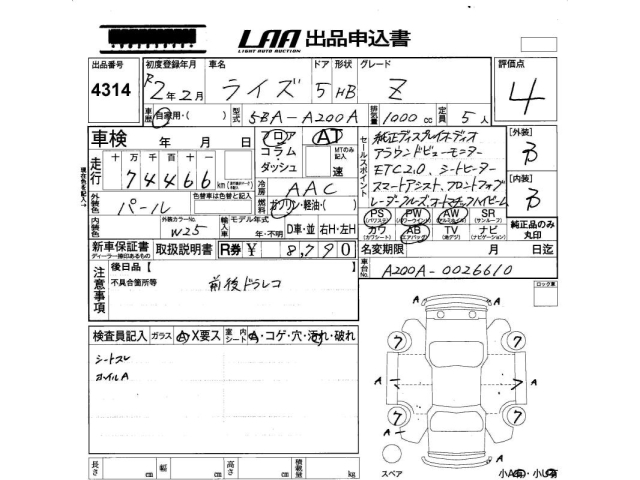 LAA 出品申込書
LIGHT AUTO AUCTION
出品番号 初度登録年月 車名 ドア 形状 グレード 評価点
4314 R2年2月 ライズ 5 HB Z 4
車歴 自家用・( ) 型式 5BA-A200A 排気量 1000 cc 定員 5 人
車検 年 月 日 フロア AT
コラム・ MTのみ記入
ダッシュ 速
走行 十 万 千 百 十 一
74466 km
冷房 AAC
外装色 パール 色替車は色替と記入 燃料 ガソリン・軽油・( )
内装色 外装カラーNo. W25 輸入車 モデル年式 年・不明 D車・並 右H・左H
セールスポイント
純正ディスプレイオーディオ
アラウンドビューモニター
ETC2.0、シートヒーター
スマートアシスト、フロントフォグ
レーダークルーズ、オートマチックハイビーム
[外装] B
[内装] B
PS (パワステ) PW (パワーウインド) AW (アルミホイル) SR (サンルーフ)
カワ (カワシート) AB (エアバッグ) TV (地デジ) ナビ (ナビゲーション)
純正品のみ丸印
新車保証書 取扱説明書 R券 ¥ 8,790
ディーラー捺印あるもの
名変期限 月 日迄
車台No. A200A-0026610
注意事項 後日品【 】
不具合箇所等 前後ドラレコ
ロック東
検査員記入 ガラス A・X要ス 室内シート A・コゲ・穴・汚れ・破れ
シートスレ
ホイルA
A A
7 7
A A
7 7
A A
A
長さ cm 幅 cm 高さ cm 積載量 kg
スペア 小A有・小U有